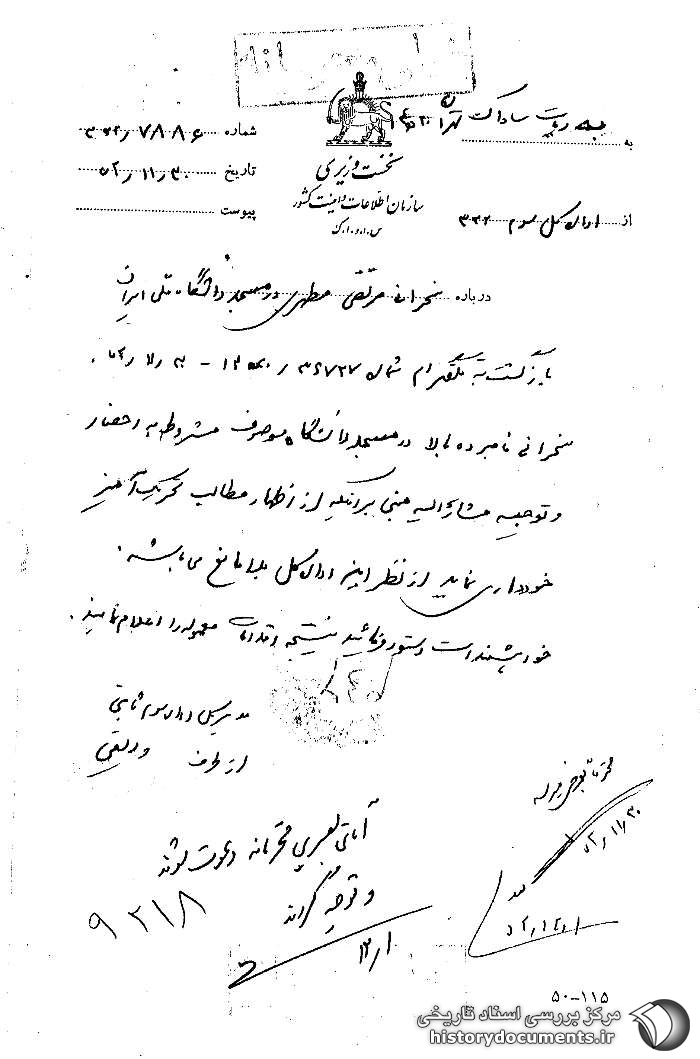 به ریاست ساواک تهران
به
شماره ۳۲۲/۷۸۸۶
نخست وزیری
تاریخ ۵۲/۱۱/۳۰
سازمان اطلاعات و امنیت کشور
س.ا.و.ا.ک
پیوست
از اداره کل سوم ۳۲۲
درباره سخرانی مرتضی مطهری در مسجد دانشگاه ملی ایران
بازگشت به تلگرام شماره
سخنرانی نامبرده بالا در مسجد دانشگاه موصوف مشروط به احضار
و توجیه مشارالیه مبنی بر اینکه از اظهار مطالب تحریک آمیز
خودداری نماید از نظر این اداره کل بلامانع می‌باشد.
خواهشمند است دستور فرمائید نتیجه اقدامات معموله را اعلام نمایند.
مدیر کل اداره سوم ثابتی
از طرف
۵۲/۱۱/۳۰
آقای محرمانه دعوت شوند
و توجیه گردند
۱۲/۱
۹۳۱۸
۵۲/۱۲/۱
۵۰-۱۱۵
مرکز بررسی اسناد تاریخی
historydocuments.ir